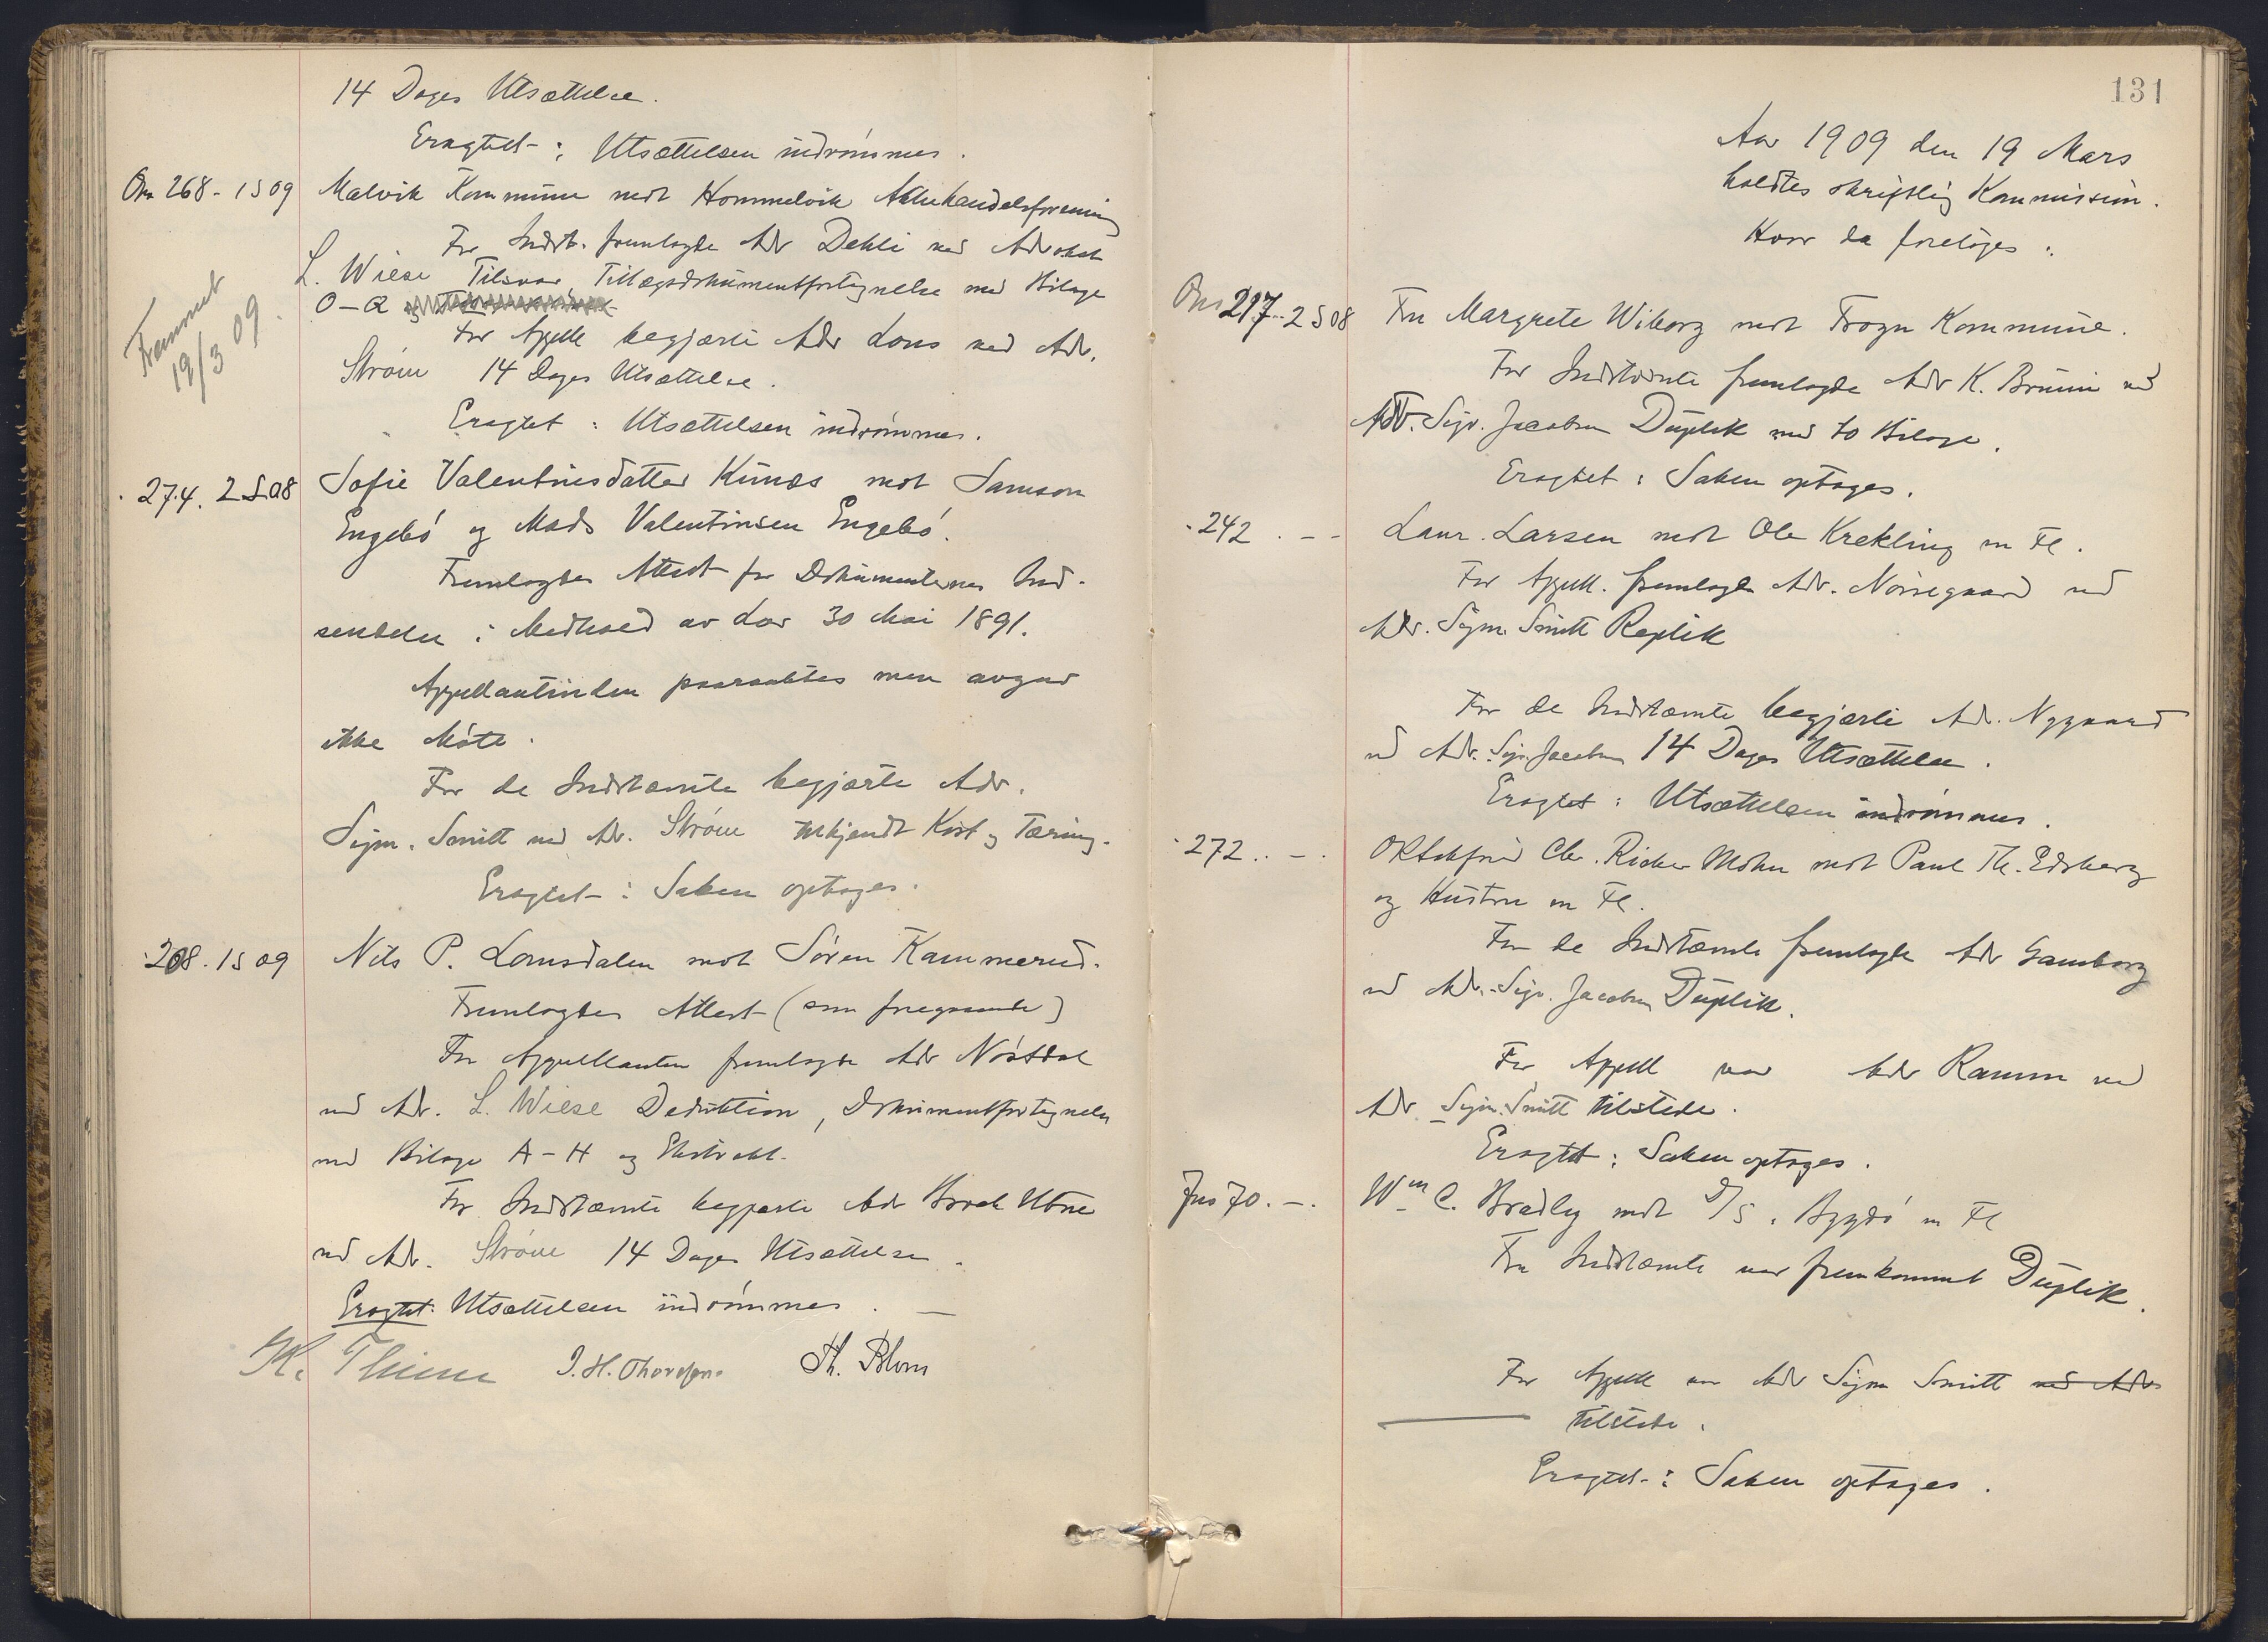 14 Dages Utsættelse.
Eragtet: Utsættelsen indrømmes.
Om 268 - 1 S 09 Malvik Kommune mot Hommelvik Aktiehandelsforening
For Indst. fremlagde Adv Dehli ved Advokat
L. Wiese Tilsvar, Tillægsdokumentfortegnelse med Bilage
O-Q og
For Appell begjærte Adv Lous ved Adv.
Strøm 14 Dages Utsættelse.
Fremmet
19/3 09.
Eragtet: Utsættelsen indrømmes.
- 274. 2 S 08 Sofie Valentinsdatter mot Samson
Engebø og Mads Valentinsen Engebø.
Fremlagdes Attest for Dokumenternes Ind-
sendelse i Medhold av Lov 30 Mai 1891.
Appellantinden paaraabtes men avgav
ikke Møte.
For de Indstævnte begjærte Adv.
Sigm. Smitt ved Adv. Strøm tilkjendt Kost og Tæring.
Eragtet: Saken optages.
- 208. 1 S 09 Nils P. Lomsdalen mot Søren Kammerud.
Fremlagdes Attest (som foregaaende)
For Appellanten fremlagde Adv Nøstdal
ved Adv. L. Wiese Deduktion, Dokumentfortegnelse
med Bilage A-H og Ekstrakt.
For Indstævnte begjærte Adv Brock Utne
ved Adv. Strøm 14 Dages Utsættelse.
Eragtet: Utsættelsen indrømmes.
K. Thinn J. H. Thoresen Th. Blom
131
Aar 1909 den 19 Mars
holdtes skriftlig Kommission.
Hvor da foretoges:
Om 217 - 2 S 08 Fru Margrete Wiborg mot Frogn Kommune.
For Indstævnte fremlagde Adv K. Bruun ved
Adv. Sigv. Jacobsen Duplik med to Bilage.
Eragtet: Saken optages.
- 242 . - - Laur. Larsen mot Ole Krekling m Fl.
For Appell. fremlagde Adv. Nørregaard ved
Adv. Sigm. Smitt Replik
For de Indstævnte begjærte Adv. Nygaard
ved Adv. Sigv. Jacobsen 14 Dages Utsættelse.
Eragtet: Utsættelsen indrømmes.
- 272 . . - . O Rtsakfører Chr. Richer Mohn mot Paul Th. Edsberg
og Hustru m Fl.
For de Indstævnte fremlagde Adv Gamborg
ved Adv. Sigv. Jacobsen Duplik.
For Appell var Adv Ramm ved
Adv Sigm. Smitt tilstede.
Eragtet: Saken optages.
Jns 70. - . Wm C. Bradley mot D/S. Bygdø m Fl
For Indstævnte var fremkommet Duplik.
For Appell var Adv Sigm Smitt ved Adv
tilstede.
Eragtet: Saken optages.